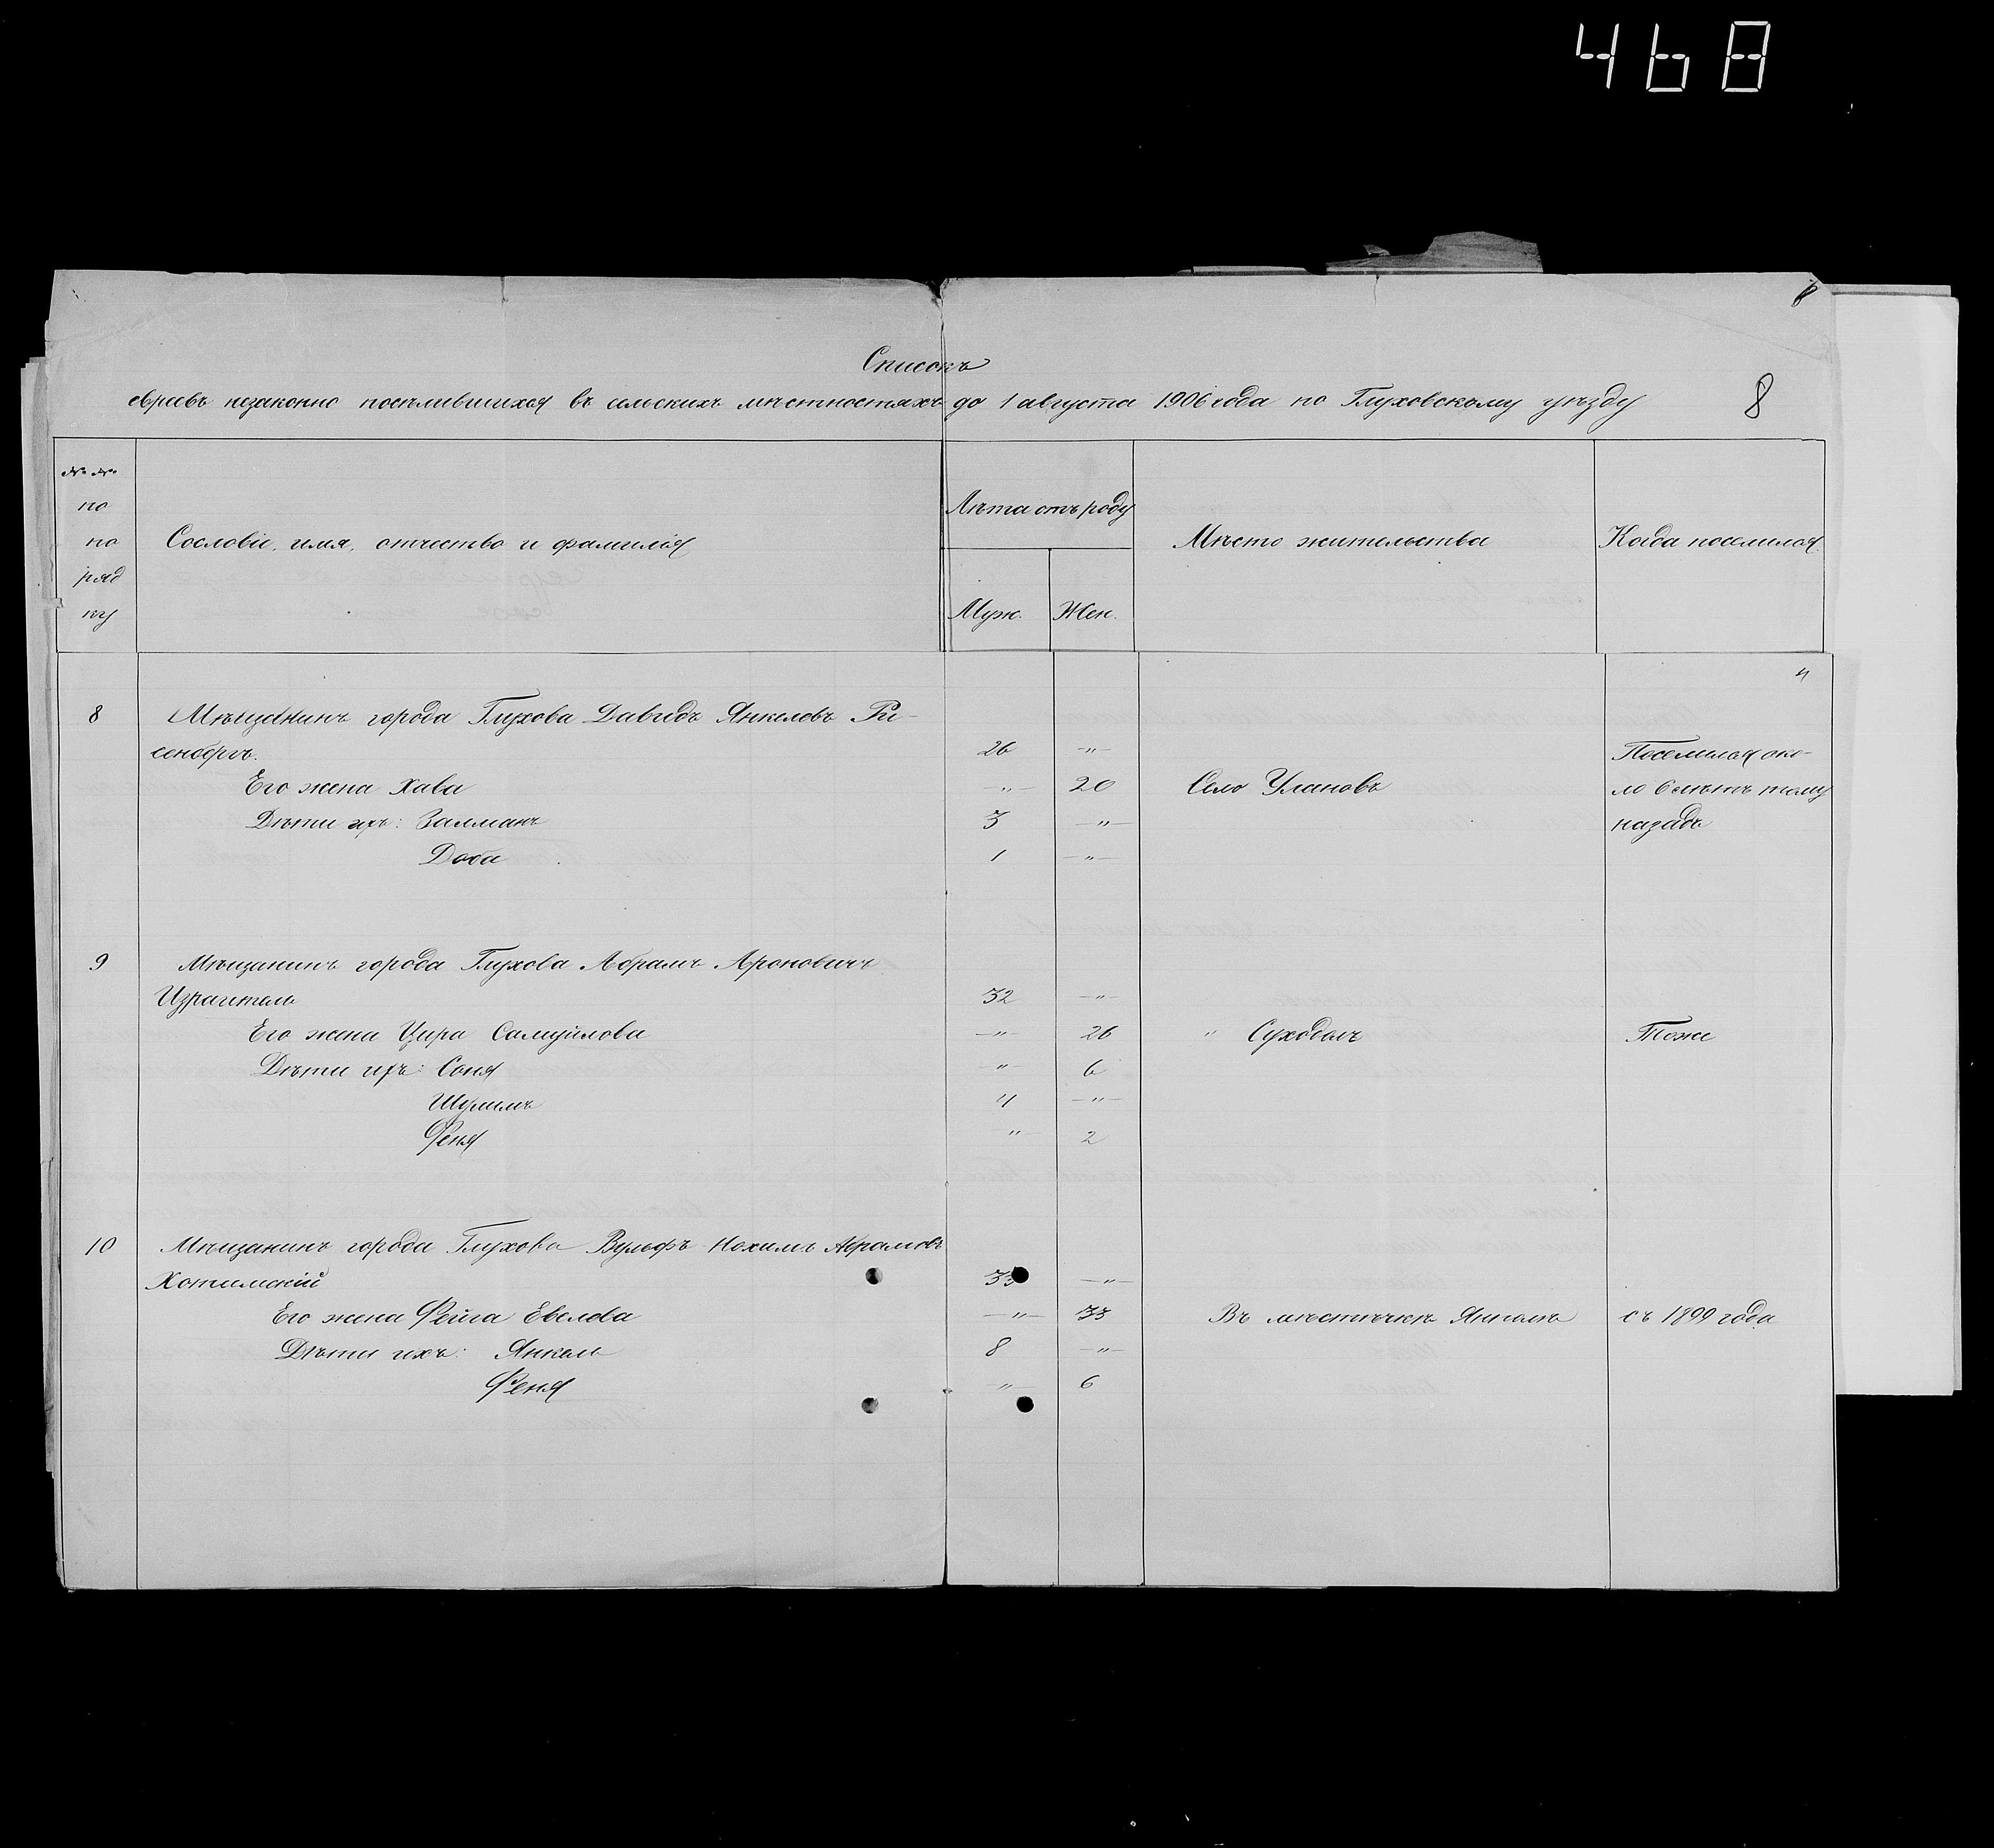 468
Списокъ
евреевъ незаконно поселившихся въ сельскихъ мѣстностяхъ до 1 августа 1906 года по Глуховскому уѣзду
8
№ №
по
по
ряд
ку
Сословіе, имя, отчество и фамилія
Лѣта отъ роду
Муж.
Жен.
Мѣсто жительства
Когда поселился
4
8 Мѣщанинъ города Глухова Давидъ Янкелевъ Ри-
сенбергъ. 26 —"— Поселился око-
Его жена Хава —"— 20 Село Улановъ ло 6 лѣтъ тому
Дѣти ихъ: Залманъ 3 —"— назадъ
Доба 1 —"—
9 Мѣщанинъ города Глухова Абрамъ Ароновичъ
Израитель 32 —"—
Его жена Цира Самуйлова —"— 26 " Суходолъ Тоже
Дѣти ихъ: Соня —"— 6
Шулимъ 4 —"—
Феня —"— 2
10 Мѣщанинъ города Глухова Вульфъ Нохимъ Абрамовъ
Хотимскій 35 —"—
Его жена Фейга Евелева —"— 33 Въ мѣстечкѣ Янполѣ съ 1899 года
Дѣти ихъ: Янкель 8 —"—
Феня —"— 6